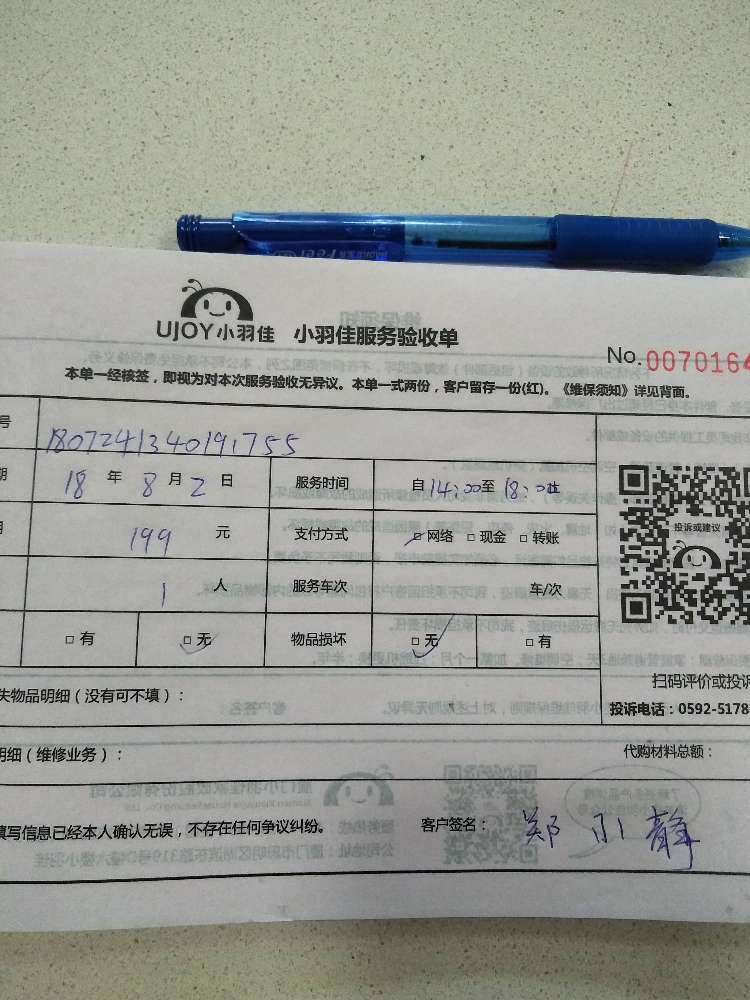 UJOY小羽佳 小羽佳服务验收单
No.0070164
本单一经核签，即视为对本次服务验收无异议。本单一式两份，客户留存一份(红)。《维保须知》详见背面。
号 180724134019,755
期 18 年 8 月 2 日 服务时间 自14:00至18:00止
199 元 支付方式 □网络 □现金 □转账
1 人 服务车次 车/次
□有 □无 物品损坏 □无 □有
投诉或建议
扫码评价或投诉
失物品明细（没有可不填）：
投诉电话：0592-5178
明细（维修业务）： 代购材料总额：
填写信息已经本人确认无误，不存在任何争议纠纷。 客户签名： 郑小静